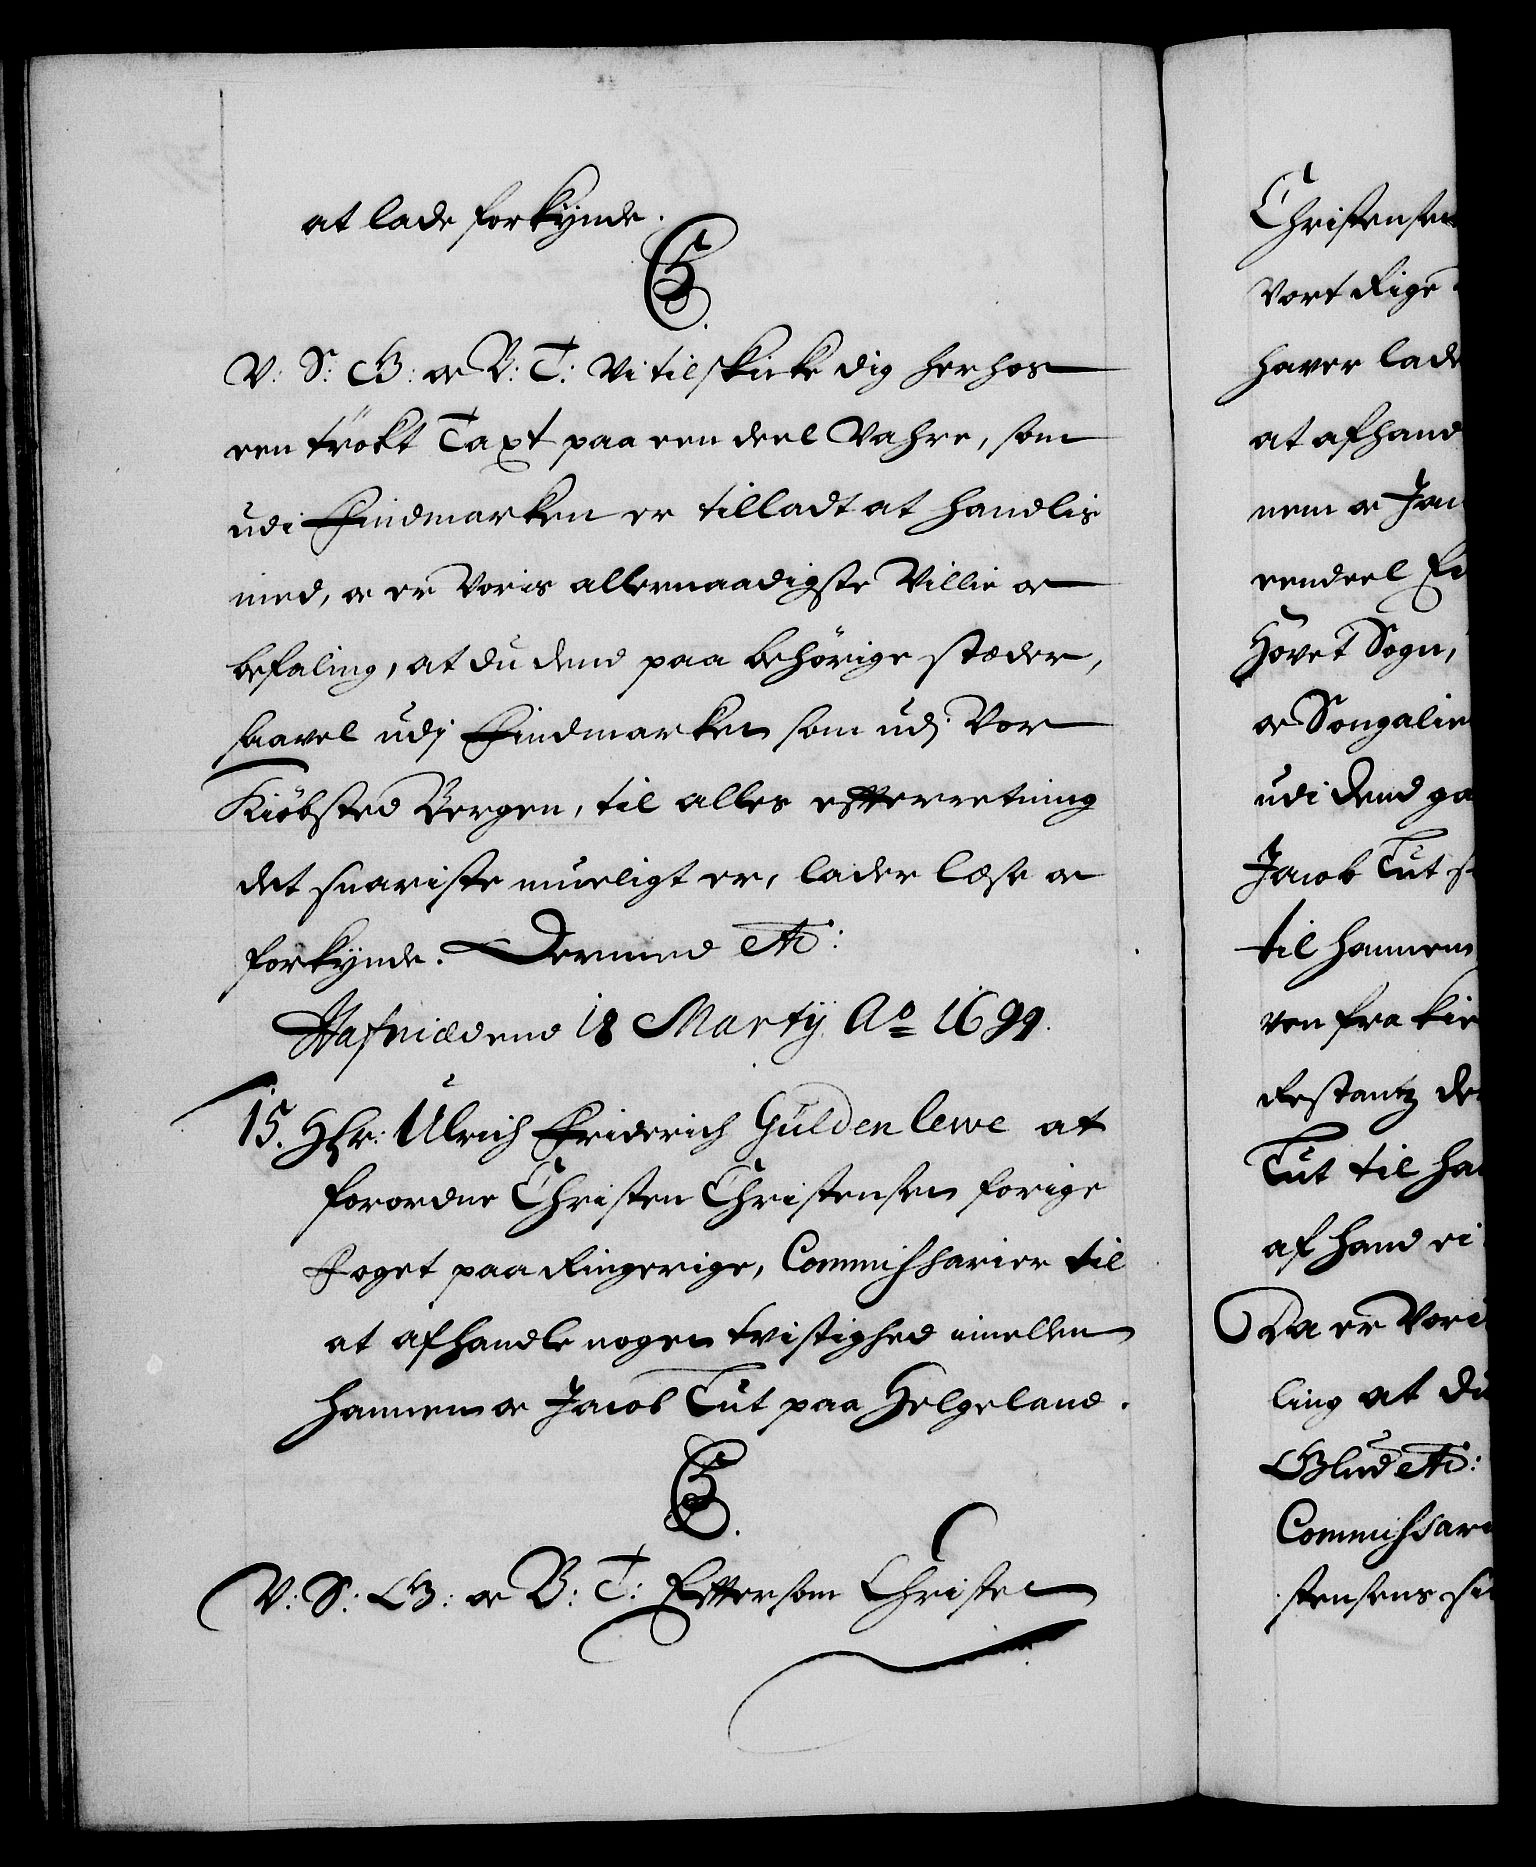 at lade forkynde.
C5.
V: S: G: oc B: T: Vi tilskicke dig herhos
een trökt Taxt paa een deel Vahre, som
udi Findmarken er tilladt at handlis
med, oc er Voris allernaadigste Villie oc
befaling, at du dend paa behörige stæder,
saavel udj Findmarken som udj Vor
Kiöbsted Bergen, til alles efterretning
det snariste mueligt er, lader læse oc
forkynde. Dermed etc:
Hafniæ dend 18 Martij Ao 1699.
15. Hr: Ulrich Friderich Güldenlewe at
forordne Christen Christensen forige
Foget paa Ringerige, Commissarier til
at afhandle nogen tvistighed imellem
hannem oc Jacob Tut paa Helgeland.
C5.
V: S: G: oc B: T: Eftersom Christen
Christensen
Vort Rige
haver lade
at afhand
nem oc Jac
eendeel
Hovet Sogn,
oc Songalie
udi dend ga
Jacob Tut
til hannem
ven fra
Restantz de
Tut til ha
af hand ei
Da er Vori
ling at du
Glud etc:
Commissari
stensens